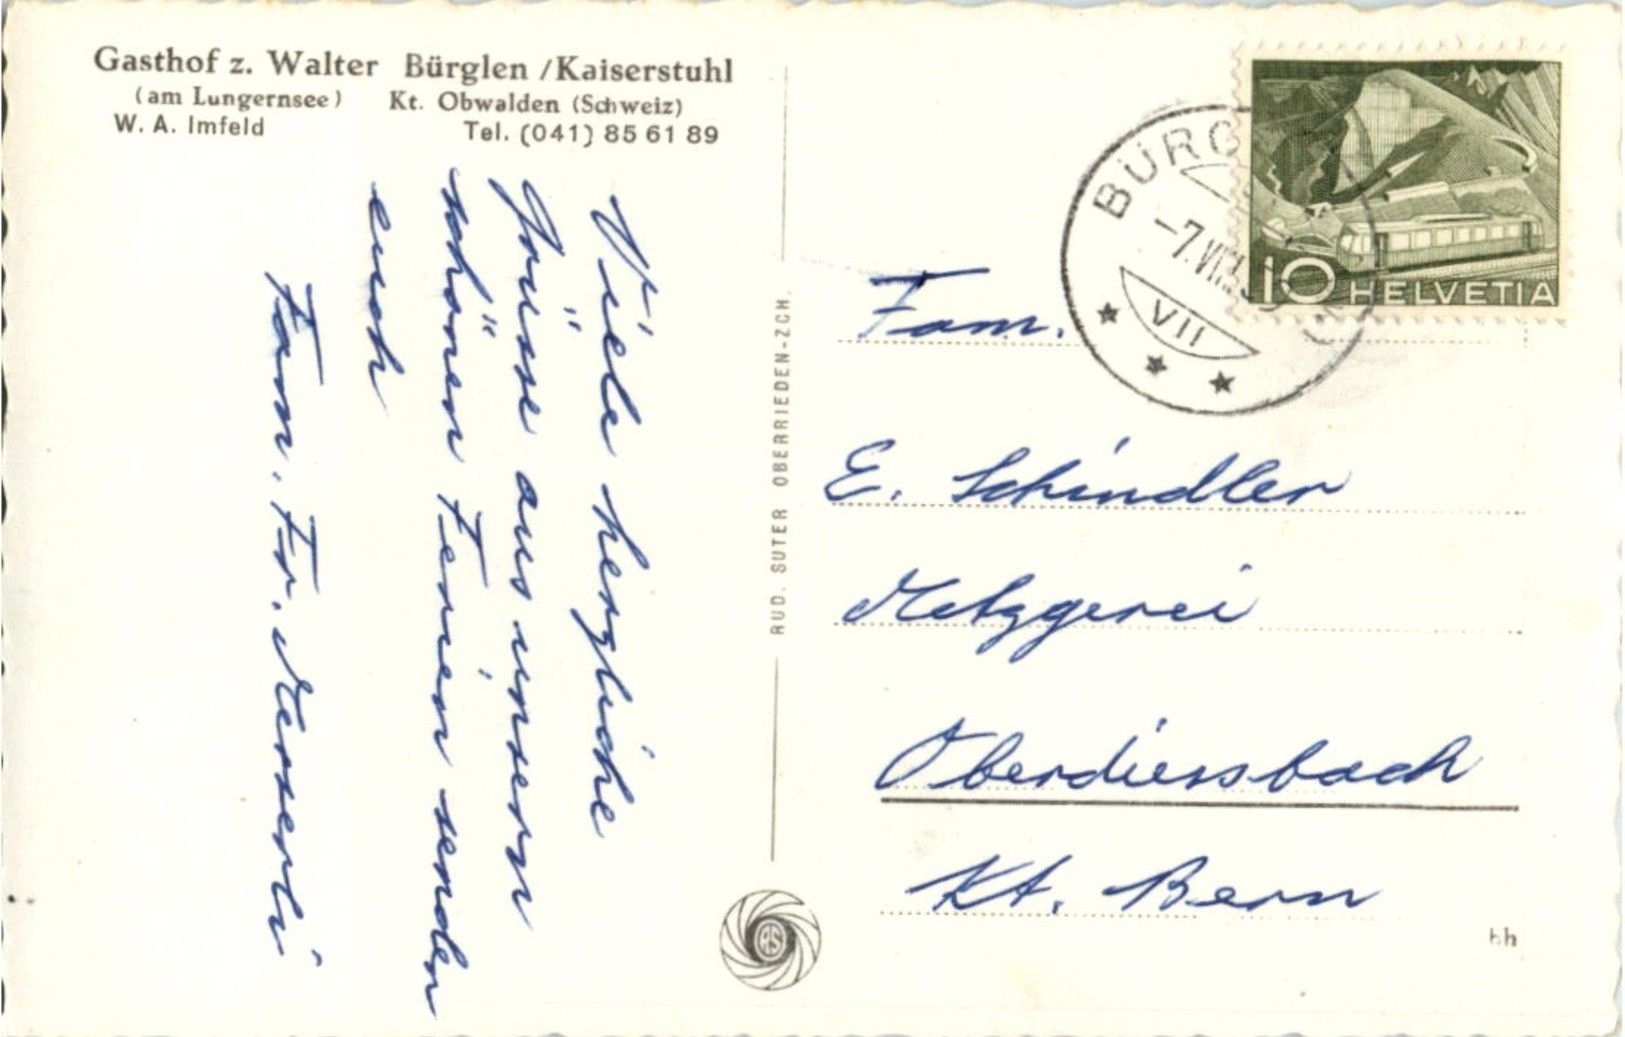 Gasthof z. Walter Bürglen /Kaiserstuhl
(am Lungernsee) Kt. Obwalden (Schweiz)
W. A. Imfeld Tel. (041) 85 61 89
Viele herzliche
Grüsse aus unsern
schönen Ferien senden
euch
Fam. Fr. Messerli
RUD. SUTER OBERRIEDEN-ZCH.
RS
BÜRG
-7.VII.
VII
10 HELVETIA
Fam.
E. Schindler
Metzgerei
Oberdiessbach
Kt. Bern
bh